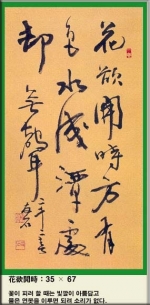 花欲開時方有
色水成潭處
却
無聲
花欲開時 : 35 × 67
꽃이 피려 할 때는 빛깔이 아름답고
물은 연못을 이루면 되려 소리가 없다.